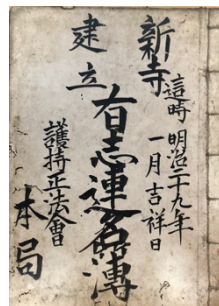 新寺
建立
這時明治二十九年
一月吉祥日
有志連名簿
護持正法會
本局